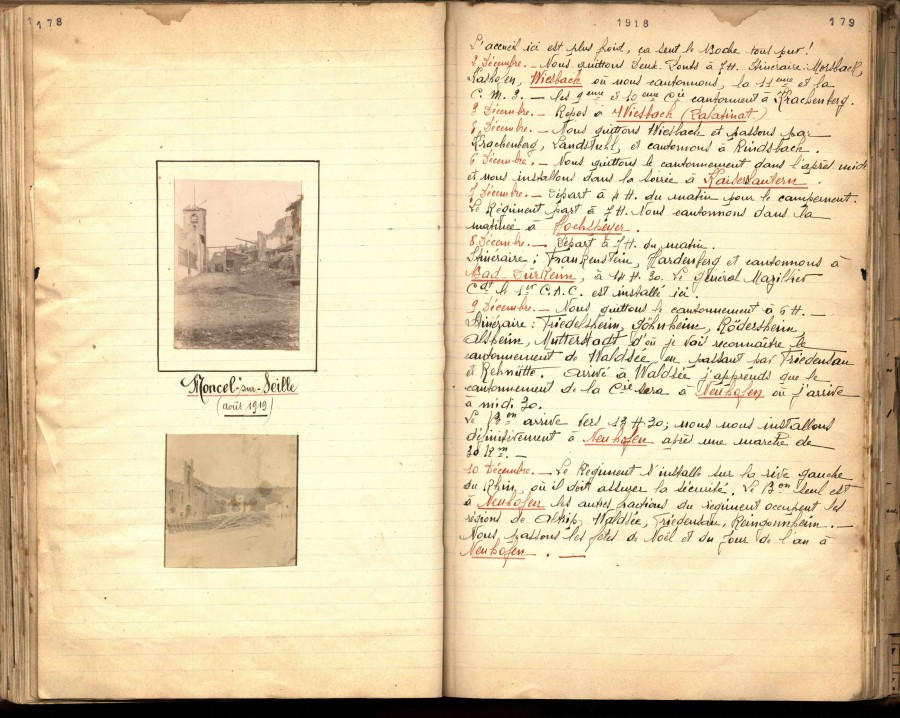 178
Moncel-sur-Seille
(août 1919)
1918
179
L'accueil ici est plus froid, ça sent le Boche tout pur !
2 Décembre. — Nous quittons Deux-Ponts à 7H. Itinéraire : Morsbach,
Kashofen, Wiesbach où nous cantonnons, la 11ème et la
C. M. 3. — Les 9ème et 10ème Cie cantonnent à Krachenberg.
3 Décembre. — Repos à Wiesbach (Palatinat)
5 Décembre. — Nous quittons Wiesbach et passons par
Krachenberg, Landstuhl, et cantonnons à Kindsbach.
6 Décembre. — Nous quittons le cantonnement dans l'après midi
et nous installons dans la soirée à Kaiserlautern.
7 Décembre. — Départ à 4 H. du matin pour le campement.
Le Régiment part à 7 H. Nous cantonnons dans la
matinée à Hochspeyer.
8 Décembre. — Départ à 7 H. du matin.
Itinéraire : Frankenstein, Hardenferg et cantonnons à
Bad-Dürkeim, à 14 H. 30. Le général Mazillier
Cdt le 1er C.A.C. est installé ici.
9 Décembre. — Nous quittons le cantonnement à 6 H. —
Itinéraire : Friedelsheim, Gönnheim, Rödersheim,
Alsheim, Mutterstadt d'où je vais reconnaître le
cantonnement de Waldsée en passant par Friedensau
et Rehhütte. Arrivé à Waldsée j'apprends que le
cantonnement de la Cie sera à Neuhofen où j'arrive
à midi 30.
Le Bon arrive vers 13 H. 30 ; nous nous installons
définitivement à Neuhofen après une marche de
30 Km. —
10 Décembre. — Le Régiment s'installe sur la rive gauche
du Rhin, où il doit assurer la sécurité. Le Bon seul est
à Neuhofen les autres fractions du régiment occupent les
régions de Altrip, Waldsée, Friedensau, Reingonnheim. —
Nous passons les fêtes de Noël et du jour de l'an à
Neuhofen. —